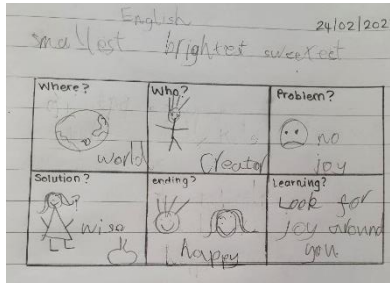 English
24/02/202
smallest brightest sweetest
Where?
world
Who?
Creator
Problem?
no
joy
Solution?
wise
ending?
happy
Learning?
Look for
joy around
you